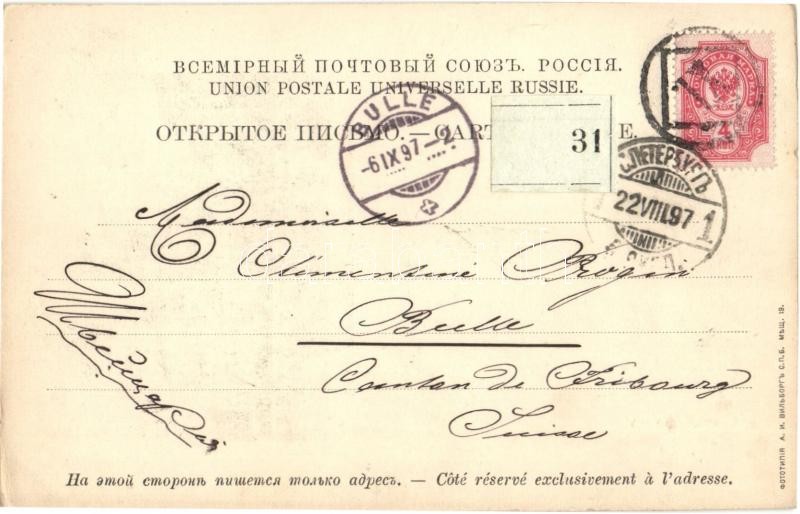 ВСЕМІРНЫЙ ПОЧТОВЫЙ СОЮЗЪ. РОССІЯ.
UNION POSTALE UNIVERSELLE RUSSIE.
ОТКРЫТОЕ ПИСЬМО. — CART E.
31
BULLE
-6 IX 97 - 2
С.ПЕТЕРБУРГЪ
22 VIII.97 1
4
Mademoiselle
Clémentine Progin
Bulle
Canton de Fribourg
Suisse
Швейцарія
На этой сторонѣ пишется только адресъ. — Côté réservé exclusivement à l'adresse.
ФОТОТИПІЯ А. И. ВИЛЬБОРГЪ С.П.Б. МѢЩ. 19.